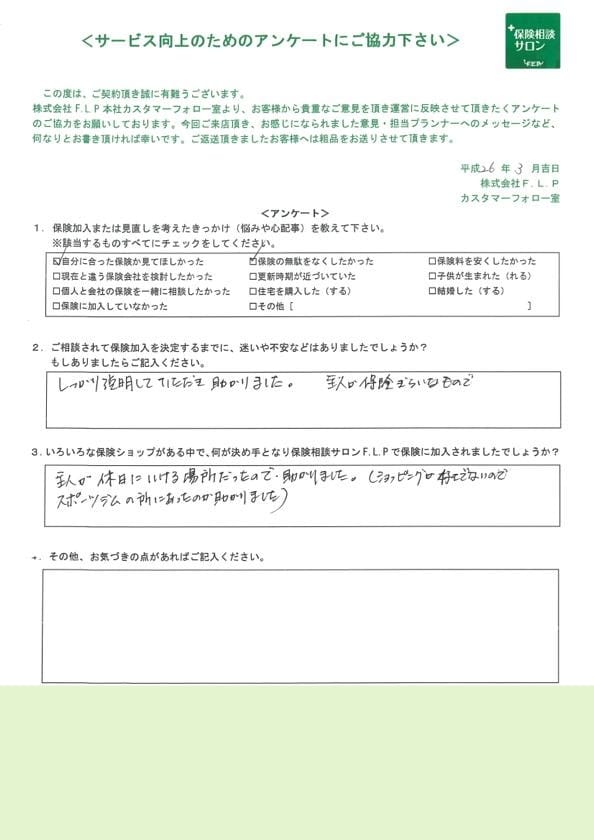 ＜サービス向上のためのアンケートにご協力下さい＞
保険相談
サロン
この度は、ご契約頂き誠に有難うございます。
株式会社F.L.P本社カスタマーフォロー室より、お客様から貴重なご意見を頂き運営に反映させて頂きたくアンケート
のご協力をお願いしております。今回ご来店頂き、お感じになられました意見・担当プランナーへのメッセージなど、
何なりとお書き頂ければ幸いです。ご返送頂きましたお客様へは粗品をお送りさせて頂きます。
平成26年3月吉日
株式会社F.L.P
カスタマーフォロー室
＜アンケート＞
1. 保険加入または見直しを考えたきっかけ（悩みや心配事）を教えて下さい。
※該当するものすべてにチェックをしてください。
☑自分に合った保険か見てほしかった ☑保険の無駄をなくしたかった □保険料を安くしたかった
□現在と違う保険会社を検討したかった □更新時期が近づいていた □子供が生まれた（れる）
□個人と会社の保険を一緒に相談したかった □住宅を購入した（する） □結婚した（する）
□保険に加入していなかった □その他［ ］
2. ご相談されて保険加入を決定するまでに、迷いや不安などはありましたでしょうか？
もしありましたらご記入ください。
しっかり説明していただき助かりました。 主人が保険ぎらいなもので
3. いろいろな保険ショップがある中で、何が決め手となり保険相談サロンF.L.Pで保険に加入されましたでしょうか？
主人が休日にいける場所だったので・助かりました。（ショッピングが好きでないので
スポーツジムの所にあったのが助かりました）
4. その他、お気づきの点があればご記入ください。